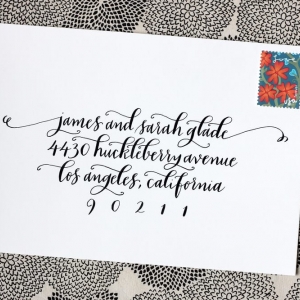 james and sarah glade
4430 huckleberry avenue
los angeles, california
90211